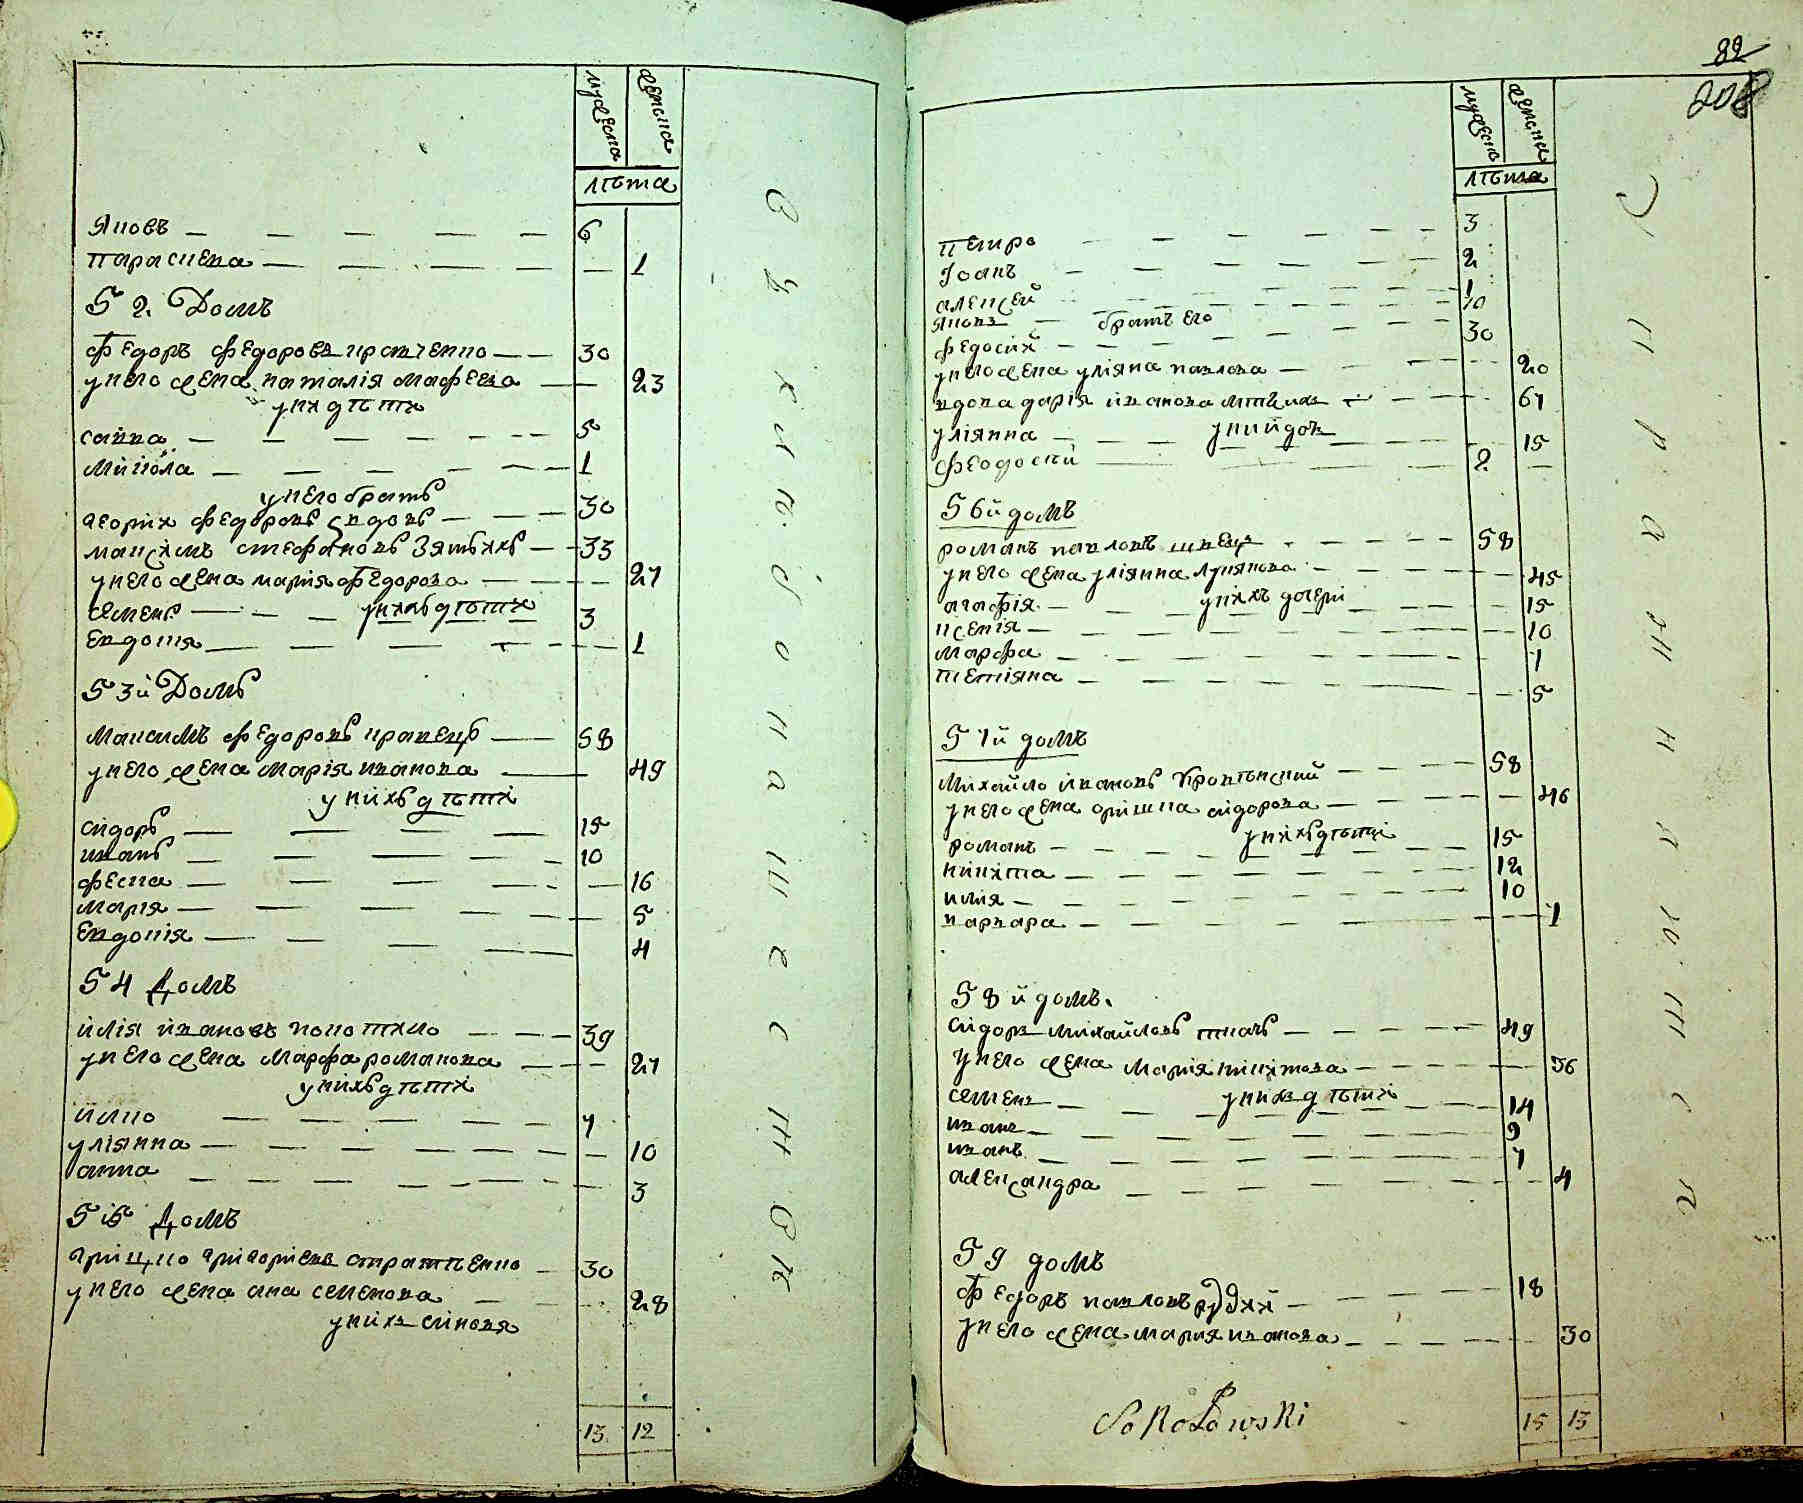 мужеска
женска
лѣта
Яковъ — 6
Параскева — 1
52. Домъ
Федоръ Федоровъ кравченко — 30
у него жена наталія мафеева — 23
у них дѣти
савка — 5
микола — 1
у него братъ
георги Федоровъ вдовъ — 30
максимъ стефановъ зять ихъ — 33
у него жена марія Федорова — 27
у нихъ дѣти
семенъ — 3
Евдокия — 1
53й Домъ
максимъ Федоровъ кравецъ — 58
у него жена марія иванова — 49
у нихъ дѣти
сидоръ — 15
иванъ — 10
феска — 16
марія — 5
Евдокія — 4
54 Домъ
илія ивановъ — 39
у него жена марфа романова — 27
у нихъ дѣти
илко — 7
уліянна — 10
анна — 3
55 Домъ
грицко григоріевъ — 30
у него жена ана семенова — 28
у нихъ синовя
13 12
82
208
мужеска
женска
лѣта
петро — 3
Іоанъ — 2
алексей — 1
яковъ — 10
братъ его
федосий — 30
у него жена уліяна павлова — 20
вдова дарія иванова — 67
у ний
уліянна — 15
феодосий — 2
56й домъ
романъ павловъ швецъ — 58
у него жена уліянна лукянова — 45
у нихъ дочери
агафія — 15
ксенія — 10
марфа — 1
тетіяна — 5
57й домъ
михайло ивановъ — 58
у него жена оришка сидорова — 46
у нихъ дѣти
романъ — 15
никита — 12
илия — 10
варвара — 1
58й домъ.
сидоръ михайловъ ткачъ — 49
у него жена марія никитова — 36
у нихъ дѣти
семенъ — 14
иванъ — 9
иванъ — 7
александра — 4
59 домъ
Федоръ павловъ рудий — 18
у него жена мария иванова — 30
Sokołowski
15 13